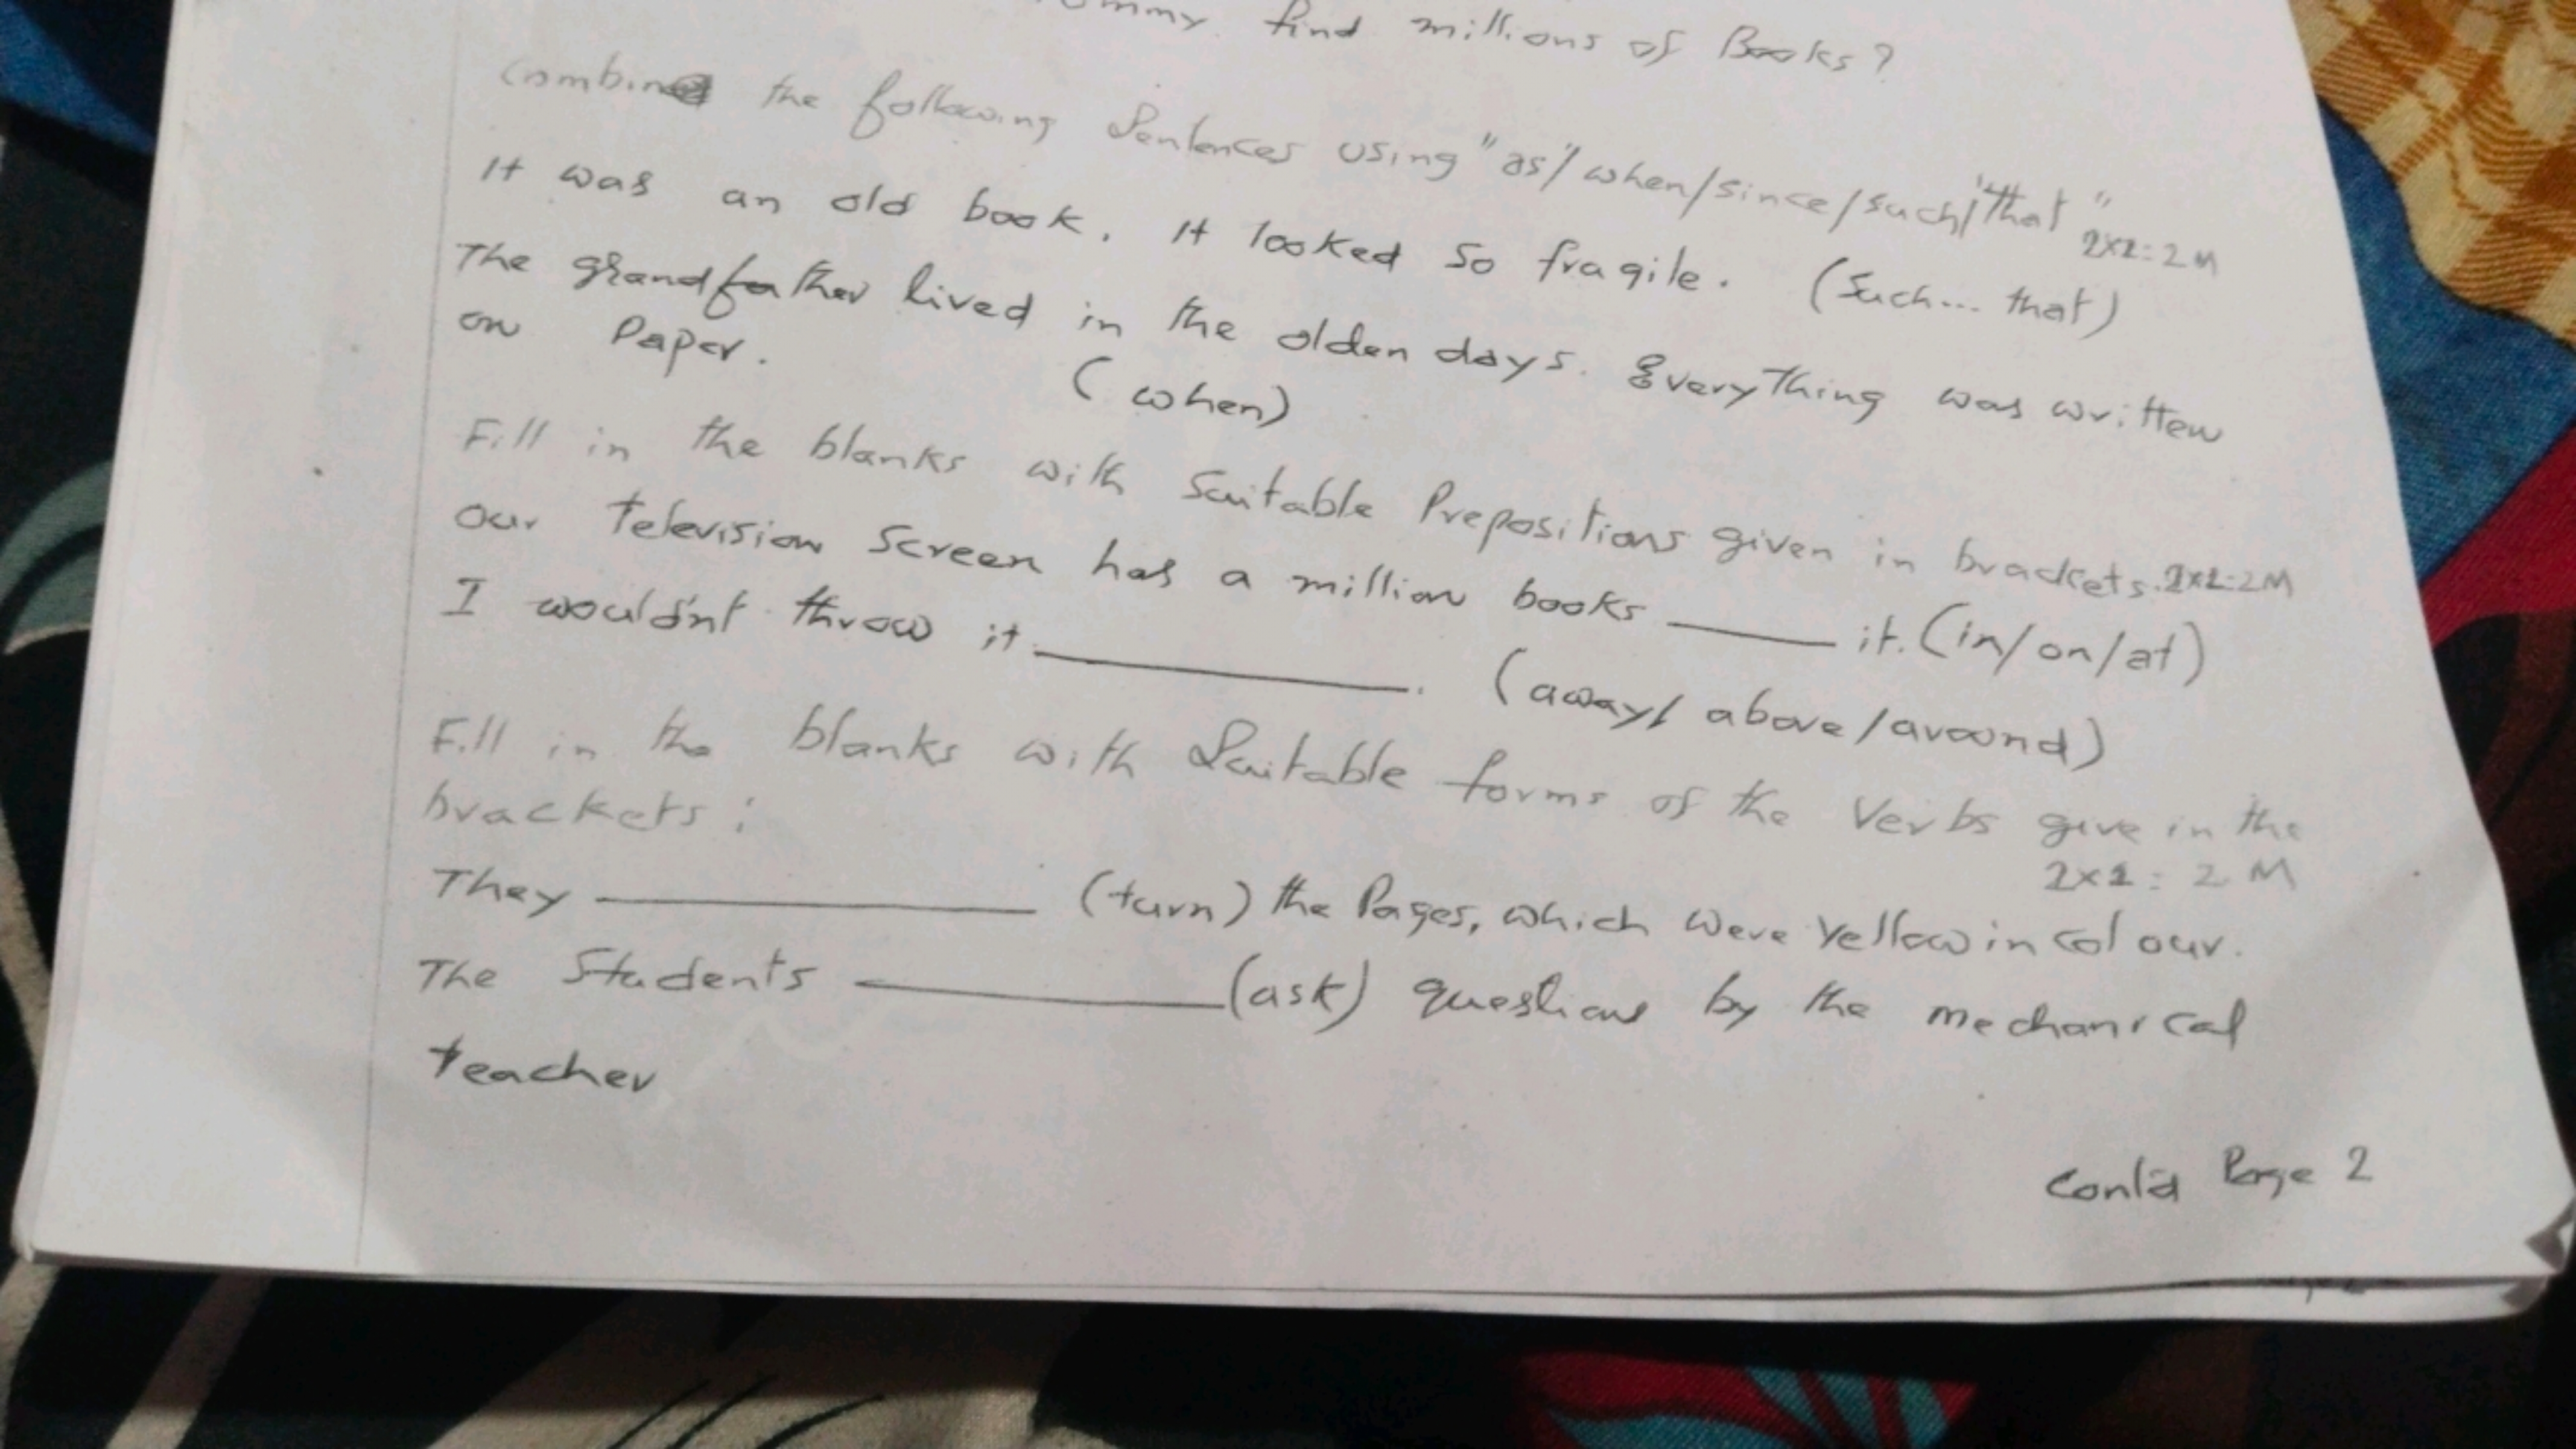 find millions of Books?
Combine the following Sentences using "as/when/since/such/that"
2x1=2M
It was an old book. It looked so fragile. (Such... that)
The grandfather lived in the olden days. Everything was written
on Paper. (when)
Fill in the blanks with Suitable Prepositions given in brackets. 2x1=2M
Our television screen has a million books ______ it. (in/on/at)
I wouldn't throw it ______. (away/ above/around)
Fill in the blanks with Suitable forms of the Verbs give in the
brackets:
2x1=2M
They ______ (turn) the Pages, which were yellow in colour.
The Students ______ (ask) questions by the mechanical
teacher
Cont'd Page 2